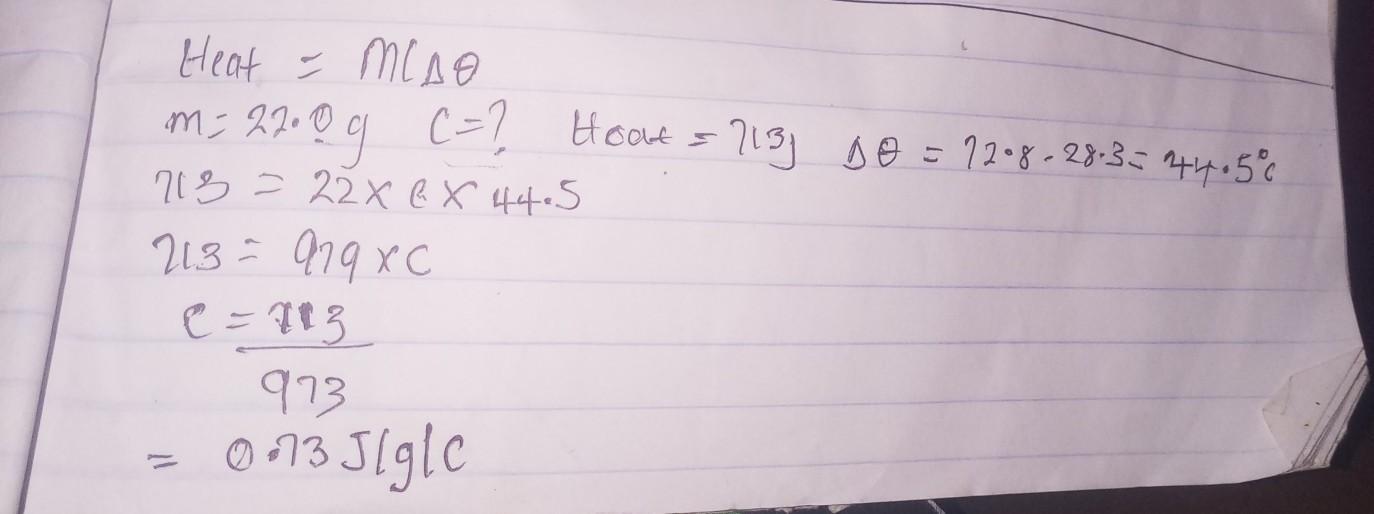 Heat = MCΔθ
m = 22.0g C=? Heat = 713J Δθ = 72.8 - 28.3 = 44.5°C
713 = 22 x C x 44.5
713 = 979 x C
C = 713
973
= 0.73 J/g/C